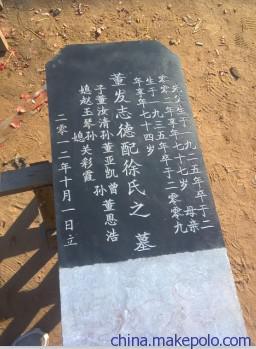 父生于一九二五年卒于二
零零一年享年七十七岁 母亲
生于一九三五年卒于二零零九
年享年七十四岁
董发志德配徐氏之墓
子董汝清孙董亚凯曾孙董恩浩
媳赵玉琴孙媳关彩霞
二零一二年十月一日立
china.makepolo.com